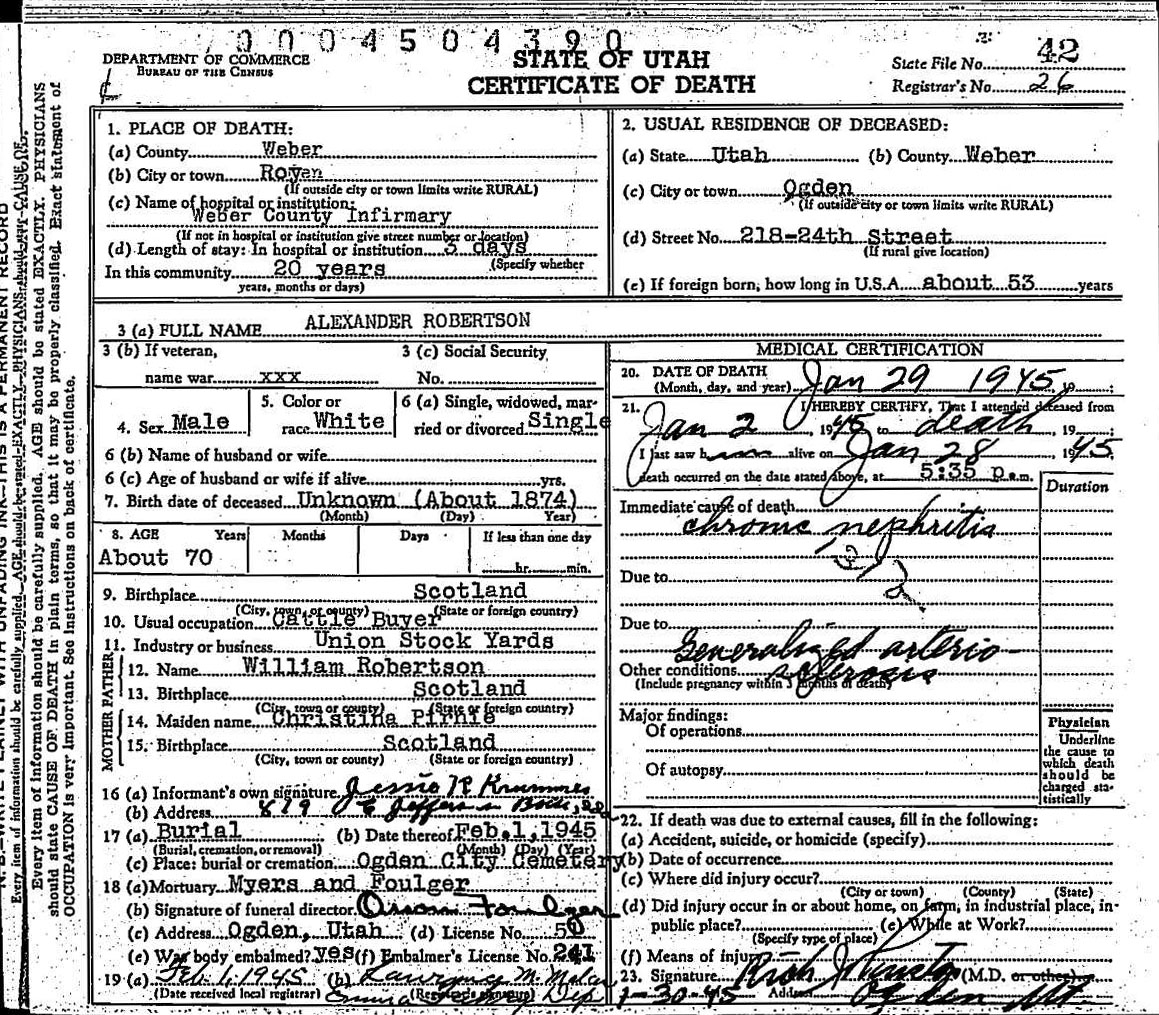 70004504390
DEPARTMENT OF COMMERCE
BUREAU OF THE CENSUS
STATE OF UTAH
CERTIFICATE OF DEATH
State File No. 42
Registrar's No. 26
1. PLACE OF DEATH:
(a) County Weber
(b) City or town
(If outside city or town limits write RURAL)
(c) Name of hospital or institution:
Weber County Infirmary
(If not in hospital or institution give street number or location)
(d) Length of stay: In hospital or institution 3 days
(Specify whether
In this community 20 years
years, months or days)
2. USUAL RESIDENCE OF DECEASED:
(a) State Utah (b) County Weber
(c) City or town Ogden
(If outside city or town limits write RURAL)
(d) Street No. 218-24th Street
(If rural give location)
(e) If foreign born, how long in U.S.A. about 53 years
3 (a) FULL NAME ALEXANDER ROBERTSON
3 (b) If veteran, name war xxx
3 (c) Social Security No.
4. Sex Male
5. Color or race White
6 (a) Single, widowed, married or divorced Single
6 (b) Name of husband or wife
6 (c) Age of husband or wife if alive yrs.
7. Birth date of deceased Unknown (About 1874)
(Month) (Day) Year)
8. AGE Years Months Days If less than one day
About 70 hr. min.
9. Birthplace Scotland
(City, town, or county) (State or foreign country)
10. Usual occupation Cattle Buyer
11. Industry or business Union Stock Yards
FATHER
12. Name William Robertson
13. Birthplace Scotland
(City, town or county) (State or foreign country)
MOTHER
14. Maiden name Christina Pirnie
15. Birthplace Scotland
(City, town or county) (State or foreign country)
16 (a) Informant's own signature Jessie R Krummes
(b) Address 819 E Jefferson Boise, Id
17 (a) Burial (b) Date thereof Feb.1,1945
(Burial, cremation, or removal) (Month) (Day) (Year)
(c) Place: burial or cremation Ogden City Cemetery
18 (a) Mortuary Myers and Foulger
(b) Signature of funeral director Foulger
(c) Address Ogden, Utah (d) License No. 50
(e) Was body embalmed? yes (f) Embalmer's License No. 241
19 (a) Feb 1, 1945 (b) Lawrence M.
(Date received local registrar) (Registrar's signature) Dep
MEDICAL CERTIFICATION
20. DATE OF DEATH
(Month, day, and year) Jan 29 1945, 19 ;
21. I HEREBY CERTIFY, That I attended deceased from
Jan 2, 1945 to death, 19 ;
I last saw him alive on Jan 28, 1945.
death occurred on the date stated above, at 5:35 p.m.
Duration
Immediate cause of death
chronic nephritis
Due to
Due to
Generalized arterio-
Other conditions sclerosis
(Include pregnancy within 3 months of death)
Major findings:
Of operations
Of autopsy
Physician
Underline
the cause to
which death
should be
charged sta-
tistically
22. If death was due to external causes, fill in the following:
(a) Accident, suicide, or homicide (specify)
(b) Date of occurrence
(c) Where did injury occur?
(City or town) (County) (State)
(d) Did injury occur in or about home, on farm, in industrial place, in-
public place? (e) While at Work?
(Specify type of place)
(f) Means of injury
23. Signature (M.D. or other)
1-30-45 Address Ogden Ut.
THIS IS A PERMANENT RECORD
Every item of information should be carefully supplied. AGE should be stated EXACTLY. PHYSICIANS
should state CAUSE OF DEATH in plain terms, so that it may be properly classified. Exact statement of
OCCUPATION is very important. See instructions on back of certificate.